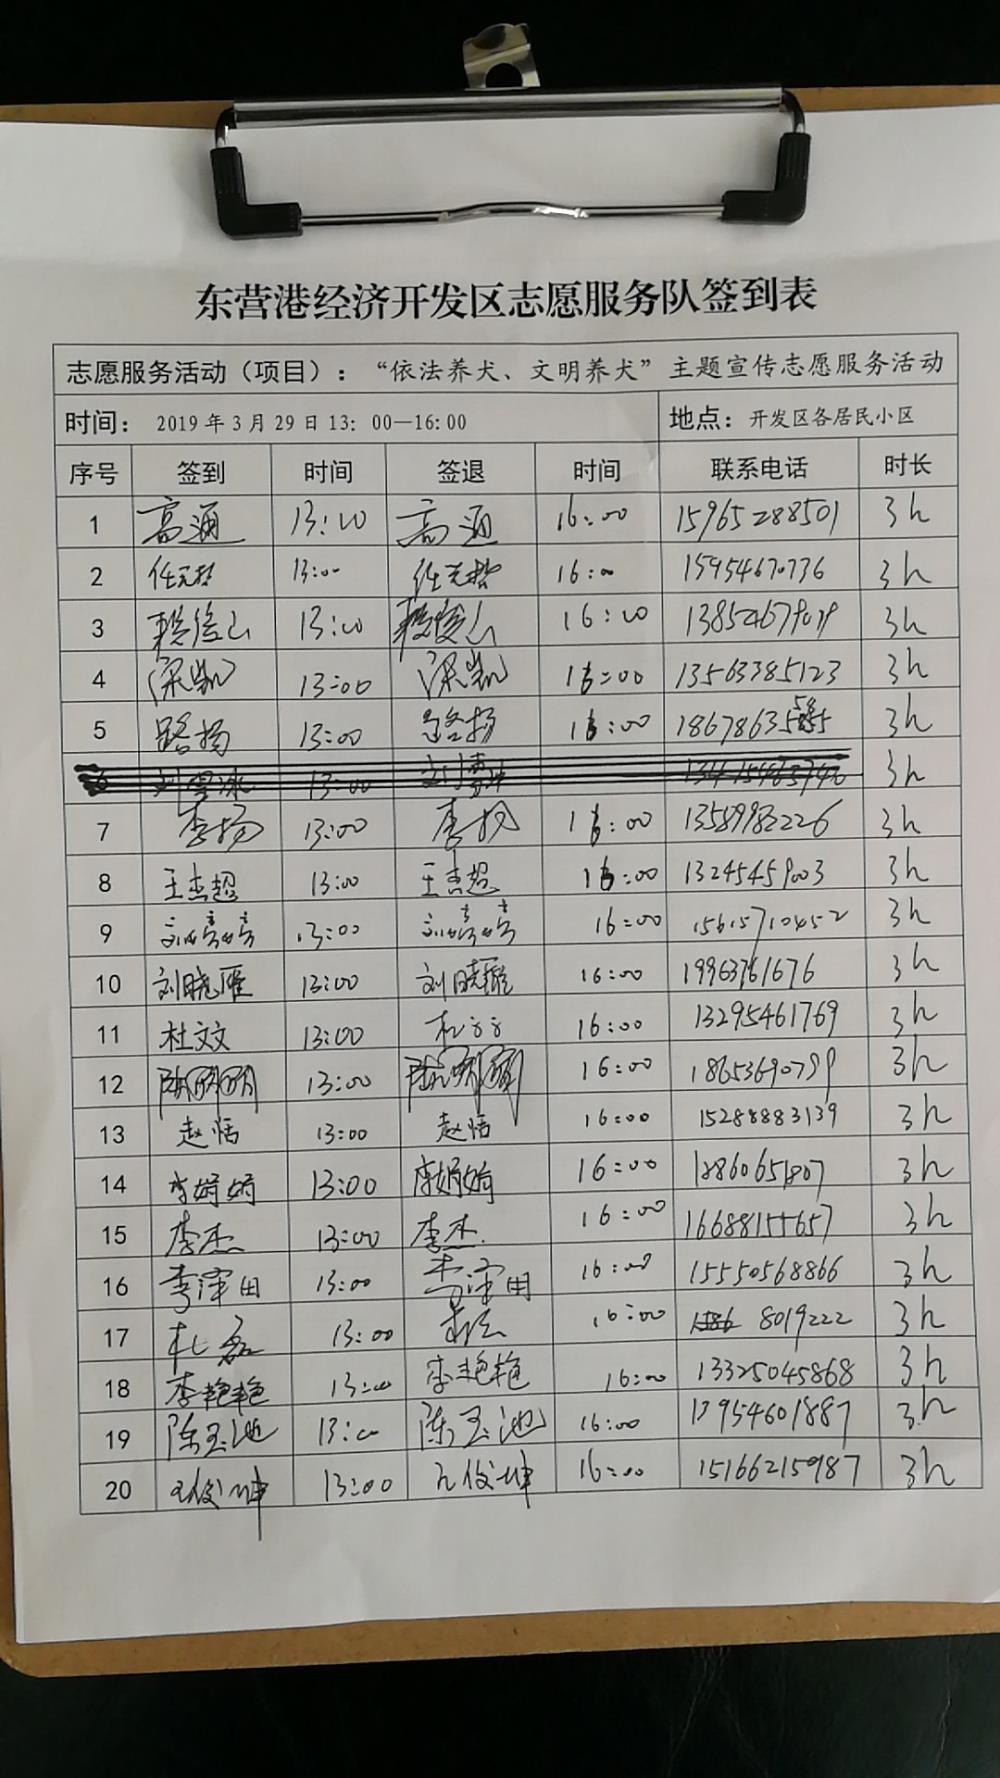 东营港经济开发区志愿服务队签到表
志愿服务活动（项目）：“依法养犬、文明养犬”主题宣传志愿服务活动
时间： 2019年3月29日13：00—16:00 地点：开发区各居民小区
序号 签到 时间 签退 时间 联系电话 时长
1 高通 13:00 高通 16:00 15965288501 3h
2 任元哲 13:00 任元哲 16:00 15954670736 3h
3 13:00 16:00 3h
4 梁凯 13:00 梁凯 16:00 13563385123 3h
5 路扬 13:00 路扬 16:00 3h
6 刘雪冰 13:00 3h
7 李扬 13:00 李扬 16:00 13589982226 3h
8 王杰超 13:00 王杰超 16:00 13245459003 3h
9 刘婷婷 13:00 刘婷婷 16:00 15615710452 3h
10 刘晓雁 13:00 刘晓雁 16:00 19963761676 3h
11 杜文文 13:00 杜文文 16:00 13295461769 3h
12 13:00 16:00 18653690799 3h
13 赵恬 13:00 赵恬 16:00 15288883139 3h
14 李娟娟 13:00 李娟娟 16:00 18860651807 3h
15 李杰 13:00 李杰 16:00 16688155657 3h
16 李泽田 13:00 李泽田 16:00 15550568866 3h
17 13:00 16:00 8019222 3h
18 李艳艳 13:00 李艳艳 16:00 13325045868 3h
19 陈玉池 13:00 陈玉池 16:00 13954601887 3h
20 13:00 16:00 15166215987 3h